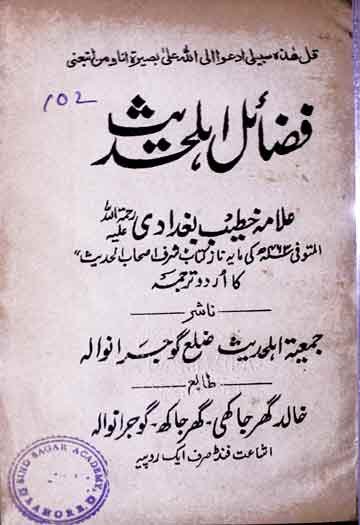 قل هذه سبيلي ادعوا الى الله على بصيرة انا ومن اتبعنى
102
فضائل اہلحدیث
علامہ خطیب بغدادی رحمۃ اللہ علیہ
المتوفی ۴۶۳ھ کی مایہ ناز کتاب شرف اصحاب الحدیث"
کا اُردو ترجمہ
ناشر
جمعیۃ اہلحدیث ضلع گوجرانوالہ
طابع
خالد گھرجاکھی - گھرجاکھ - گوجرانوالہ
اشاعت فنڈ صرف ایک روپیہ
SIND SAGAR ACADEMY, LAHORE